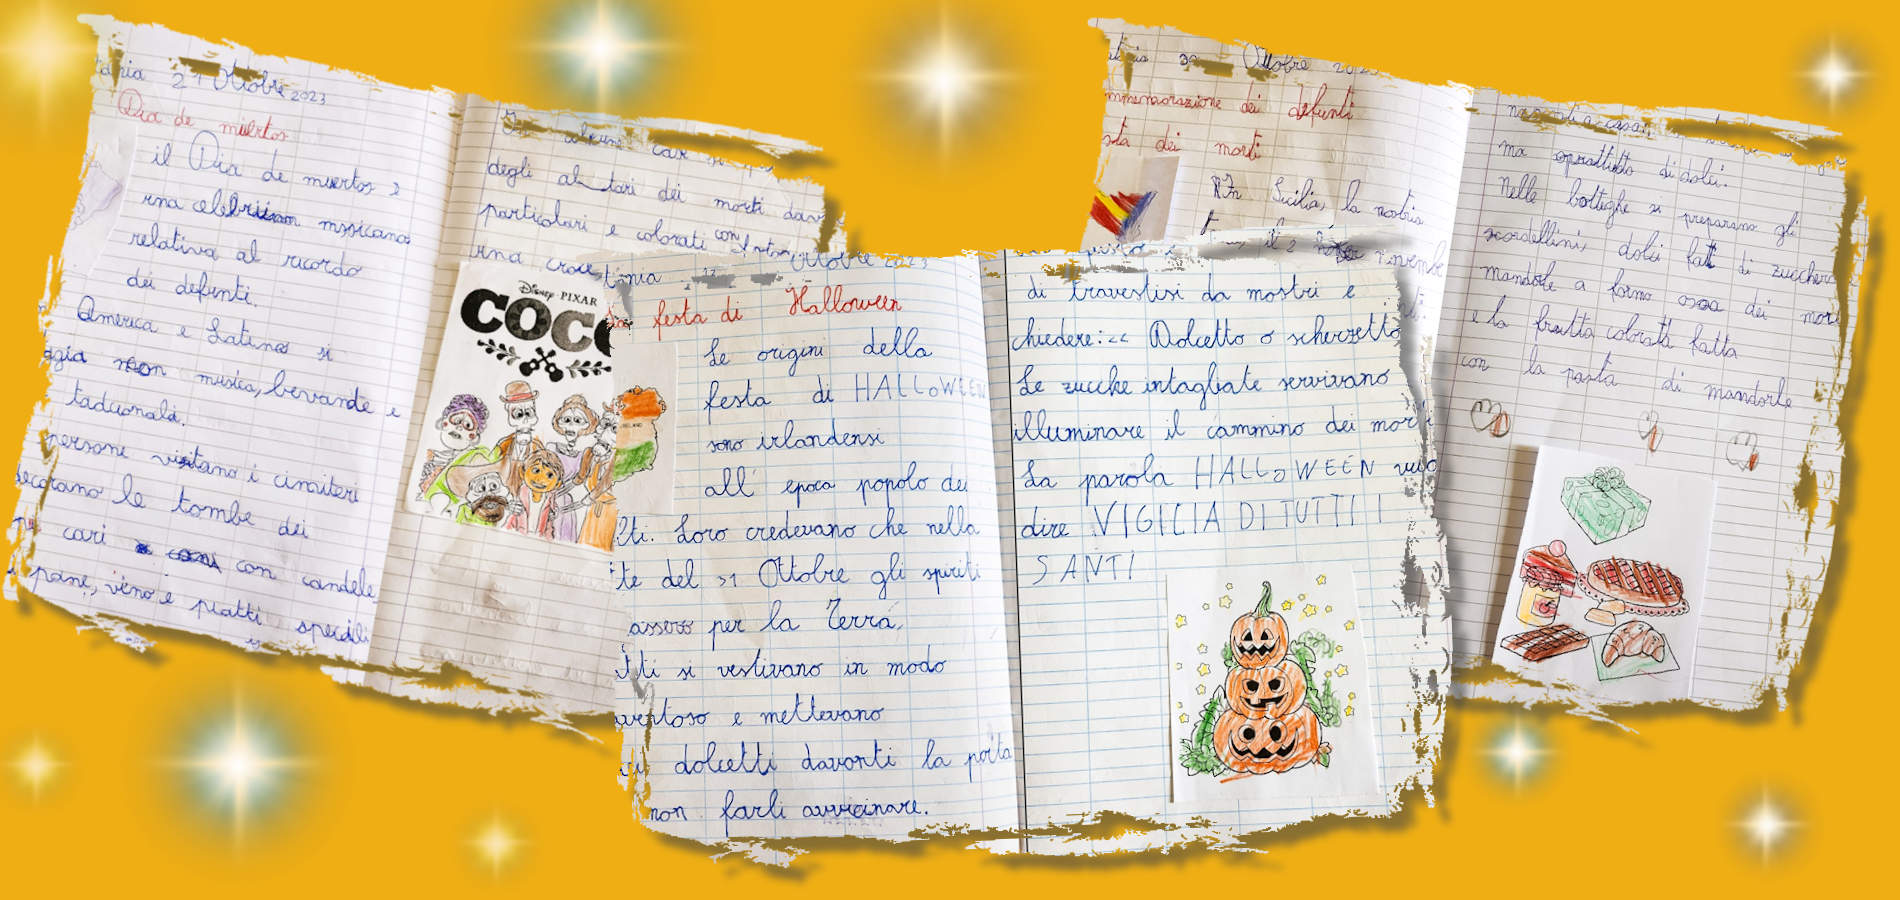 21 Ottobre 2023
Dia de muertos
il Dia de muertos è
una messicana
relativa al ricordo
dei defunti.
America e Latina si
musica, bevande e
persone visitano i cimiteri
le tombe dei
cari con candele
pane, vino e piatti speciali
In alcune case si
degli altari dei morti
particolari e colorati con
una croce
Disney PIXAR
COCO
Ottobre 2023
festa di Halloween
Le origini della
festa di HALLOWEEN
sono irlandensi
all' epoca popolo dei
Loro credevano che nella
del 31 Ottobre gli spiriti
per la Terra,
si vestivano in modo
e mettevano
dolcetti davanti la porta
non farli avvicinare.
di travestisi da mostri e
chiedere: << Dolcetto o scherzetto
Le zucche intagliate servivano
illuminare il cammino dei morti
La parola HALLOWEEN vuol
dire VIGILIA DI TUTTI I
SANTI
30 Ottobre 2023
dei defunti
dei morti
In Sicilia, la nostra
il 2 novembre
ma soprattutto di dolci.
Nelle botteghe si preparano gli
scardellini, dolci fatti di zucchero
mandorle a forno ossa dei morti
e la frutta colorata fatta
con la pasta di mandorle